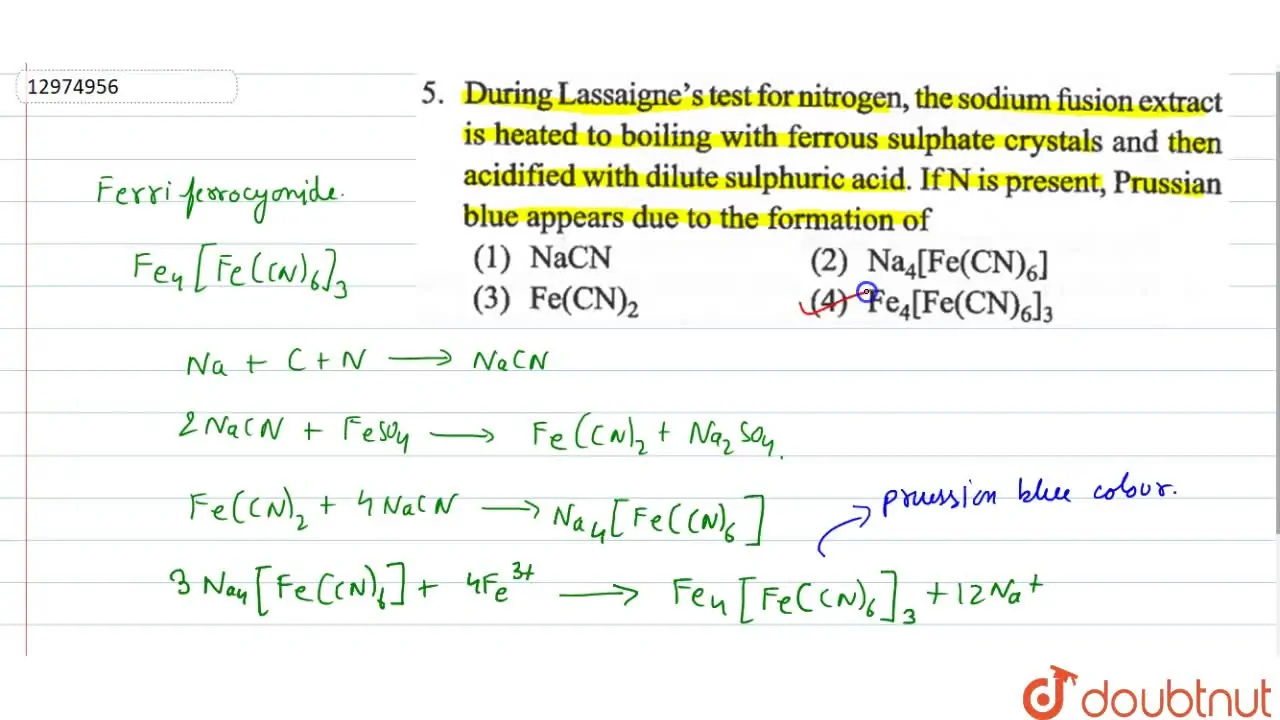 12974956
5. During Lassaigne's test for nitrogen, the sodium fusion extract
is heated to boiling with ferrous sulphate crystals and then
acidified with dilute sulphuric acid. If N is present, Prussian
blue appears due to the formation of
(1) NaCN (2) Na₄[Fe(CN)₆]
(3) Fe(CN)₂ (4) Fe₄[Fe(CN)₆]₃
Ferri ferrocyonide.
Fe₄[Fe(CN)₆]₃
Na + C + N ⟶ NaCN
2NaCN + FeSO₄ ⟶ Fe(CN)₂ + Na₂SO₄.
Fe(CN)₂ + 4NaCN ⟶ Na₄[Fe(CN)₆]
prussion blue colour.
3Na₄[Fe(CN)₆] + 4Fe³⁺ ⟶ Fe₄[Fe(CN)₆]₃ + 12Na⁺
doubtnut